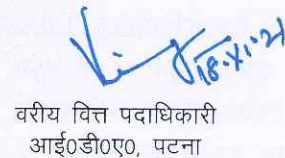 18.XI.21
वरीय वित्त पदाधिकारी
आई0डी0ए0, पटना